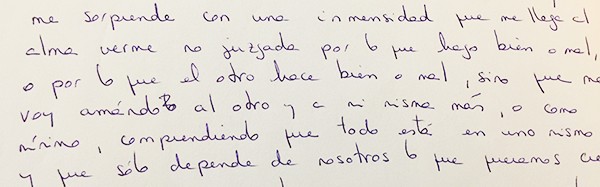 me sorprende con una inmensidad que me llega al
alma verme no juzgada por lo que hago bien o mal,
o por lo que el otro hace bien o mal, sino que me
voy amándolo al otro y a mi misma más, o como
mínimo, comprendiendo que todo está en uno mismo
y que sólo depende de nosotros lo que queramos